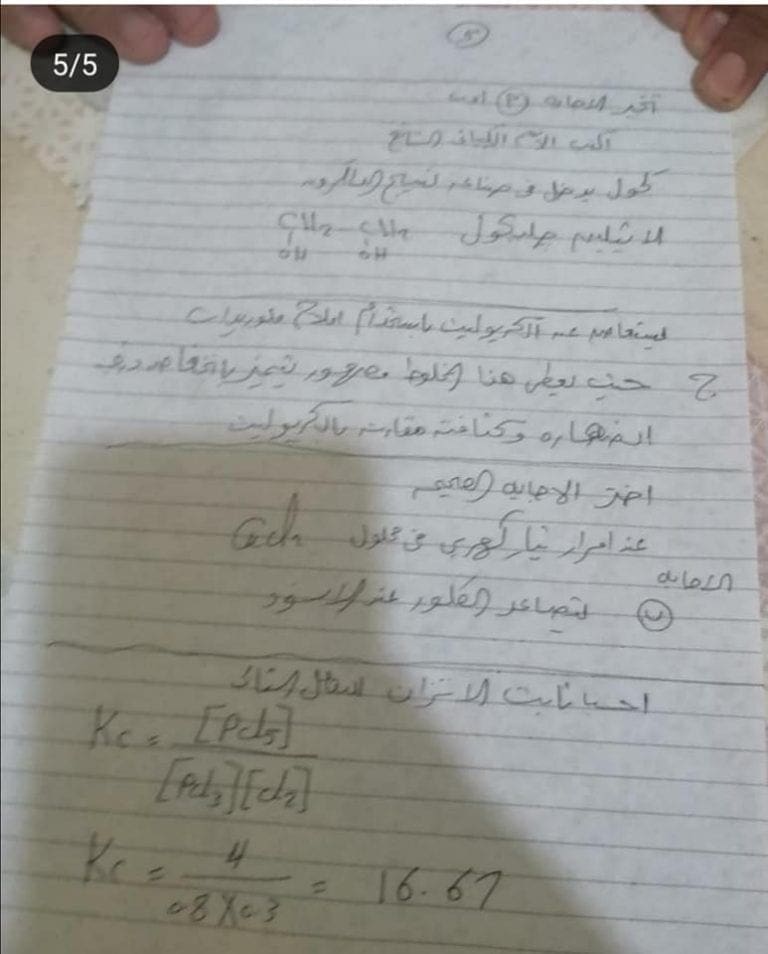 5/5
٥
اختر الاجابة (٣) او ب
اكتب الاسم الكيميائى
كحول يدخل فى صناعة نسيج الداكرون
الاثيلين جليكول CH2 - CH2
OH OH
يستعاض عن الكريوليت باستخدام املاح فلوريدات
ج حيث يعطى هذا الخليط مصهور يتميز بانخفاض درجة
انصهاره وكثافته مقارنة بالكريوليت
اختر الاجابة الصحيحة
عند امرار تيار كهربي فى محلول
الاجابة
(ب) يتصاعد الكلور عند الانود
احسب ثابت الاتزان للتفاعل
Kc = [PCl5]
[PCl3][Cl2]
Kc = 4 = 16.67
0.8 X 0.3